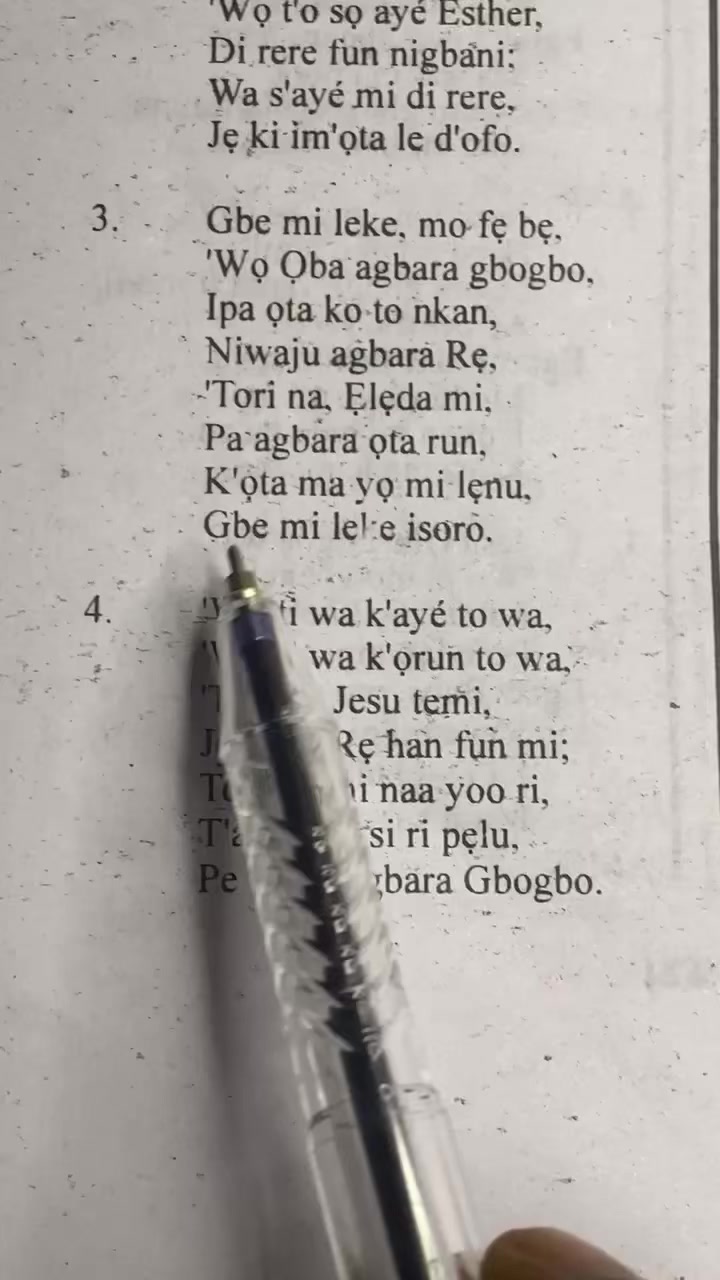 'Wọ t'o sọ ayé Esther,
Di rere fun nigbani;
Wa s'ayé mi di rere,
Jẹ ki im'ọta le d'ofo.
3. Gbe mi leke, mo fẹ bẹ,
'Wọ Ọba agbara gbogbo,
Ipa ọta ko to nkan,
Niwaju agbara Rẹ,
'Tori na, Ẹlẹda mi,
Pa agbara ọta run,
K'ọta ma yọ mi lẹnu,
Gbe mi leke isoro.
4. wa k'ayé to wa,
wa k'ọrun to wa,
Jesu temi,
Rẹ han fun mi;
naa yoo ri,
si ri pẹlu,
Pe Gbogbo.